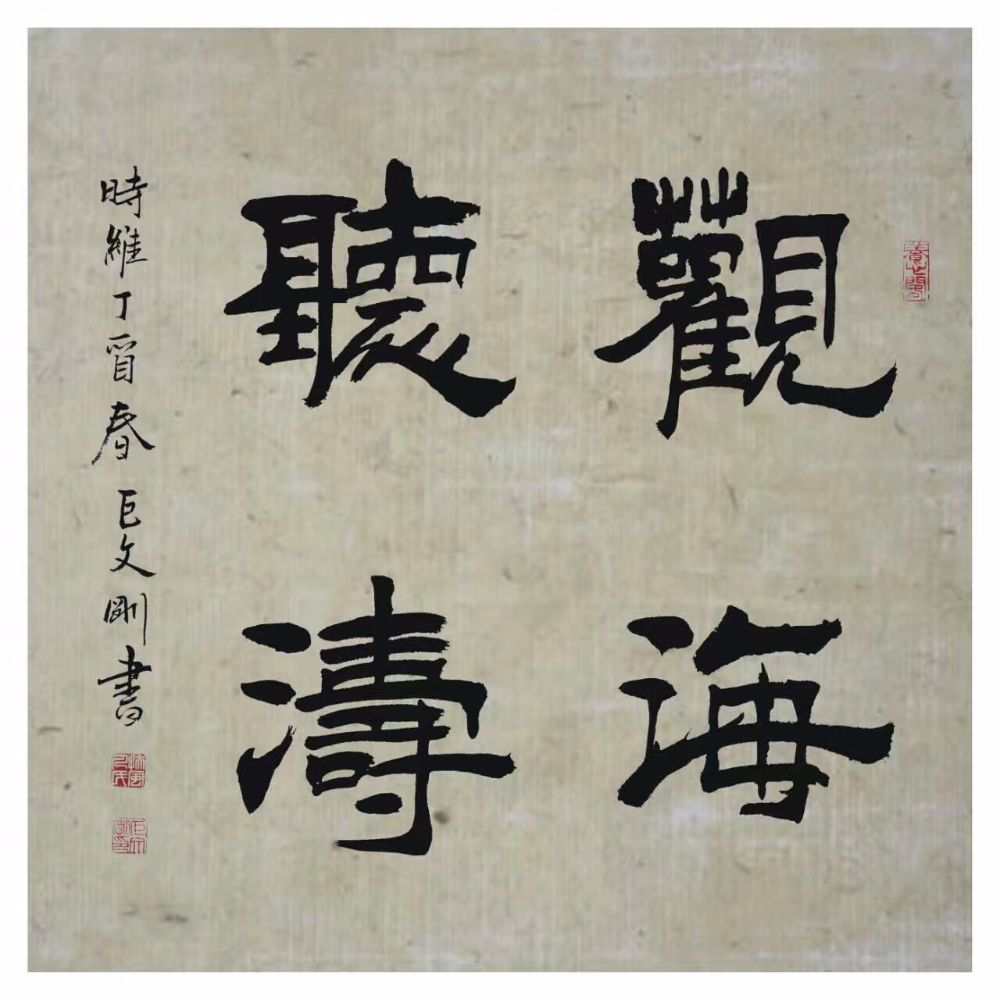 觀海
聽濤
時維丁酉春巨文剛書